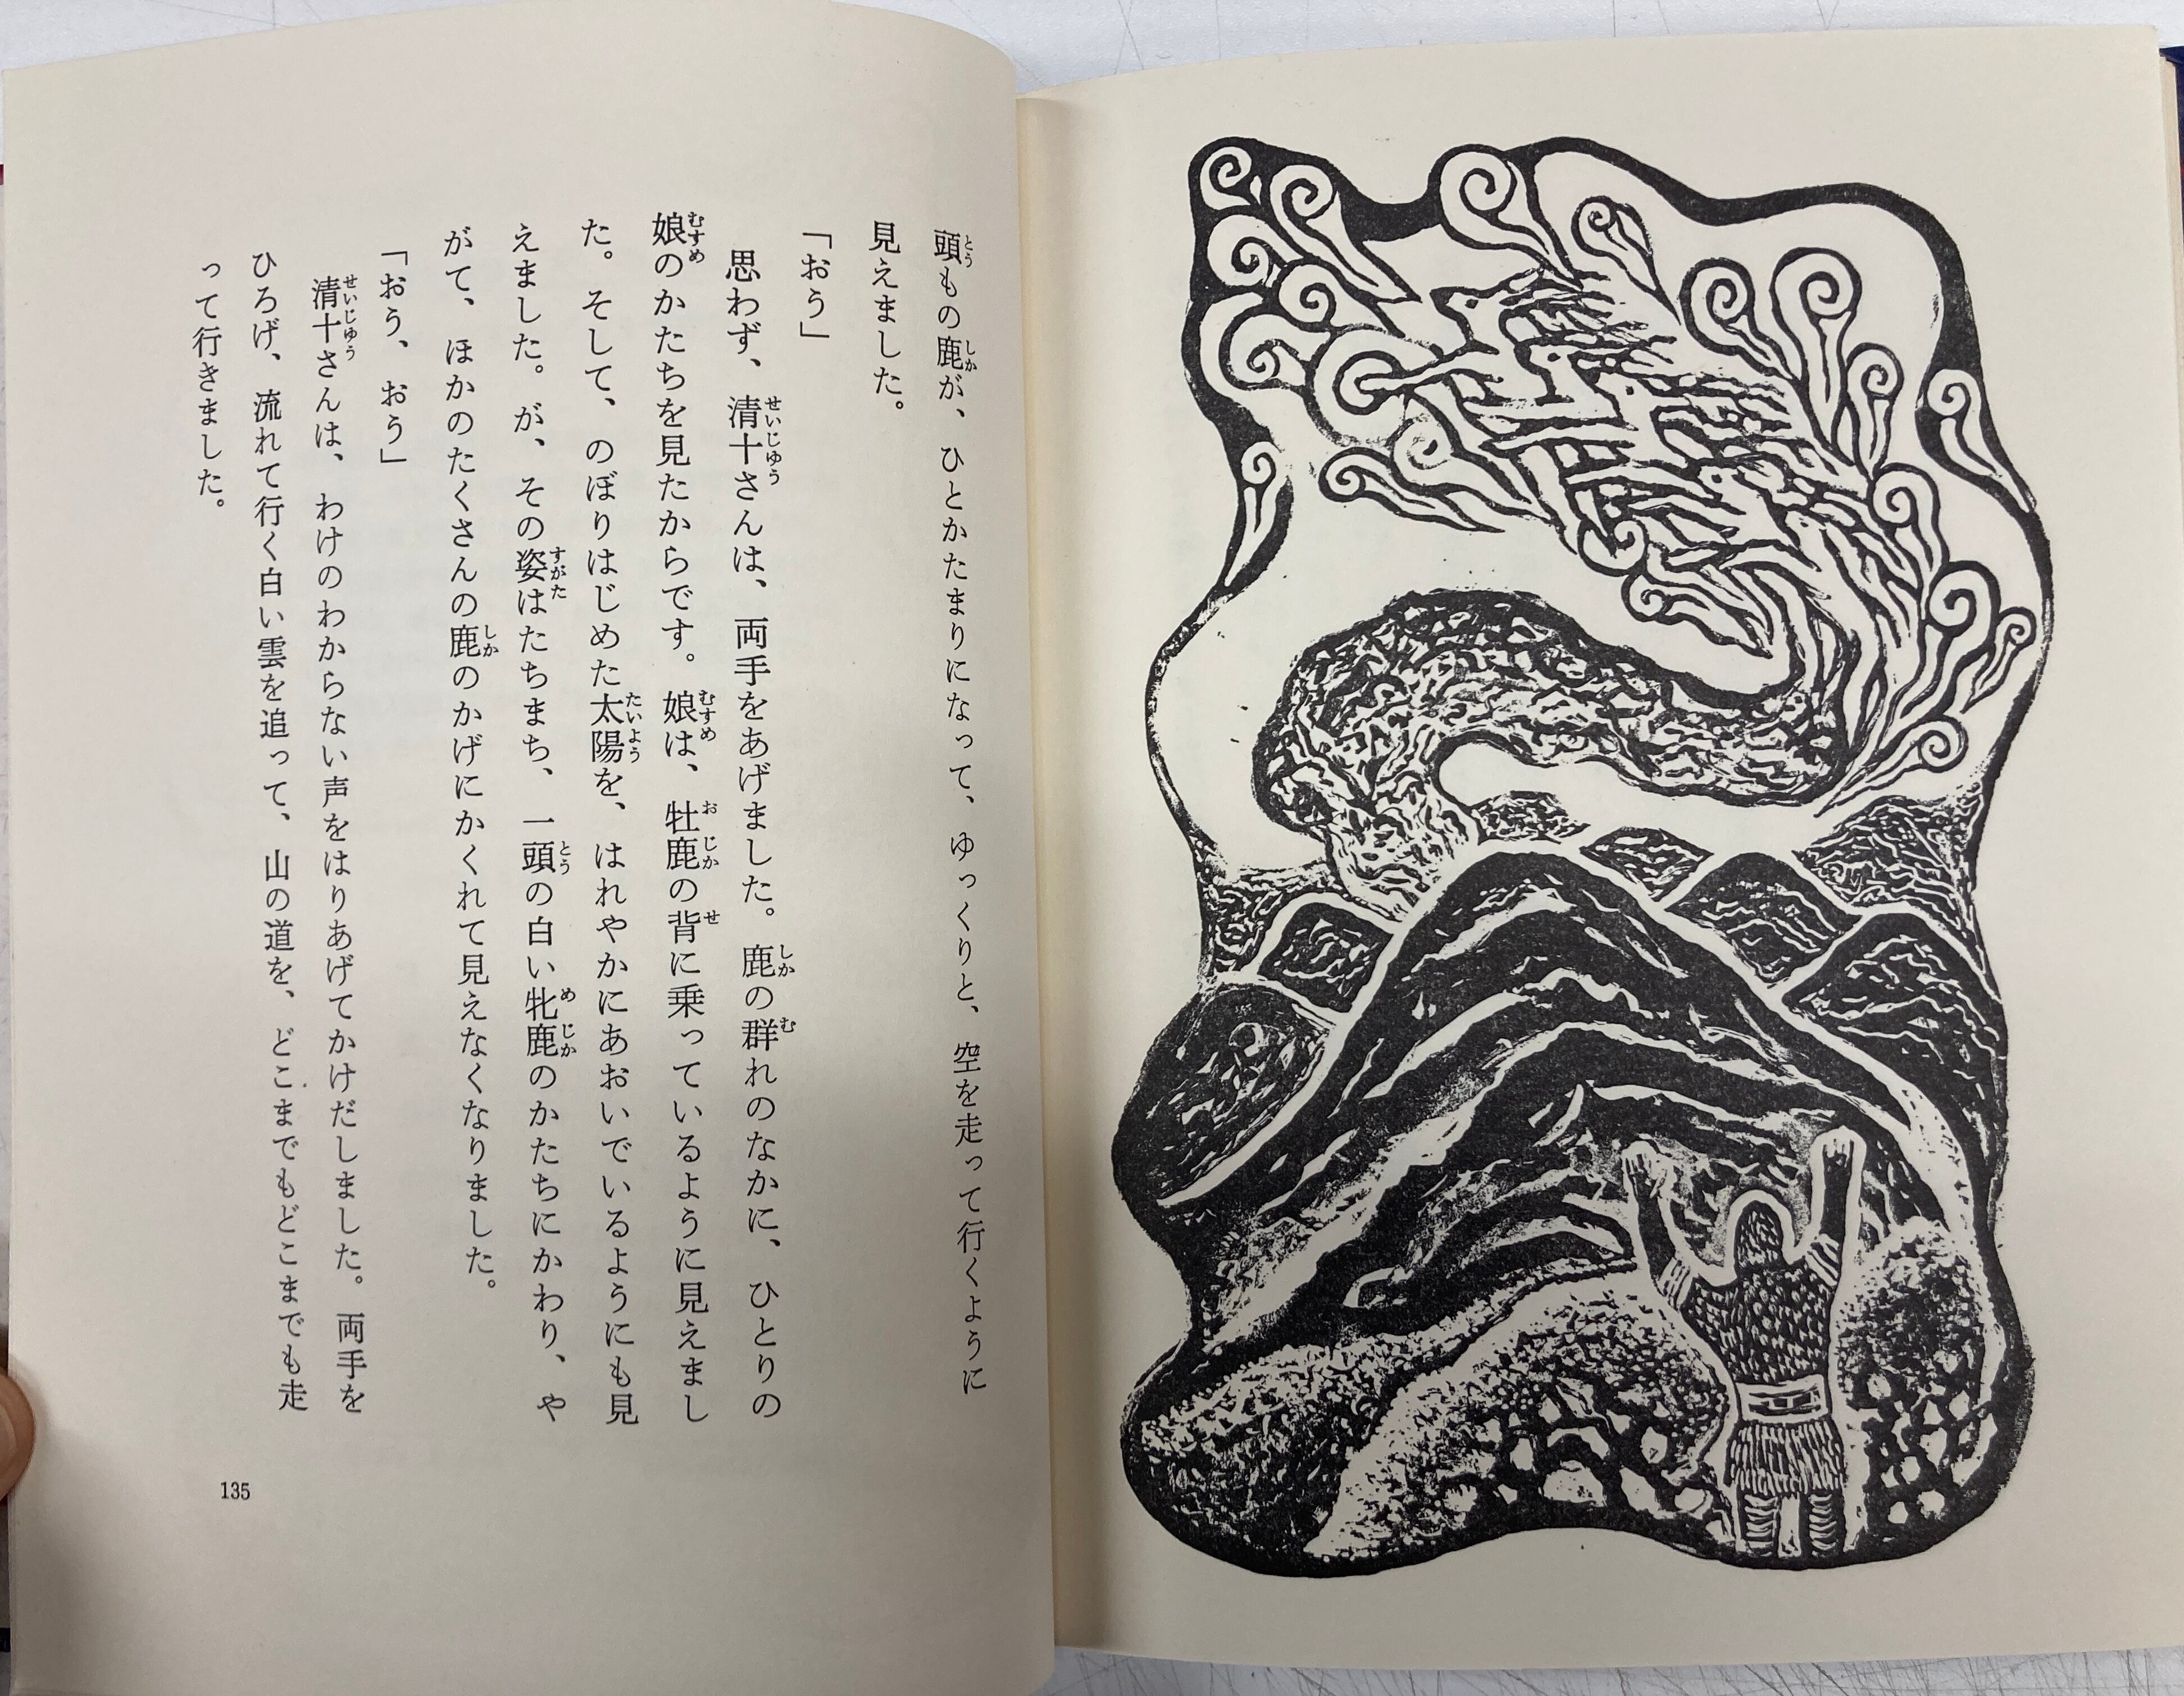 頭もの鹿が、ひとかたまりになって、ゆっくりと、空を走って行くように
見えました。
「おう」
思わず、清十さんは、両手をあげました。鹿の群れのなかに、ひとりの
娘のかたちを見たからです。娘は、牡鹿の背に乗っているように見えまし
た。そして、のぼりはじめた太陽を、はれやかにあおいでいるようにも見
えました。が、その姿はたちまち、一頭の白い牝鹿のかたちにかわり、や
がて、ほかのたくさんの鹿のかげにかくれて見えなくなりました。
「おう、おう」
清十さんは、わけのわからない声をはりあげてかけだしました。両手を
ひろげ、流れて行く白い雲を追って、山の道を、どこまでもどこまでも走
って行きました。
135